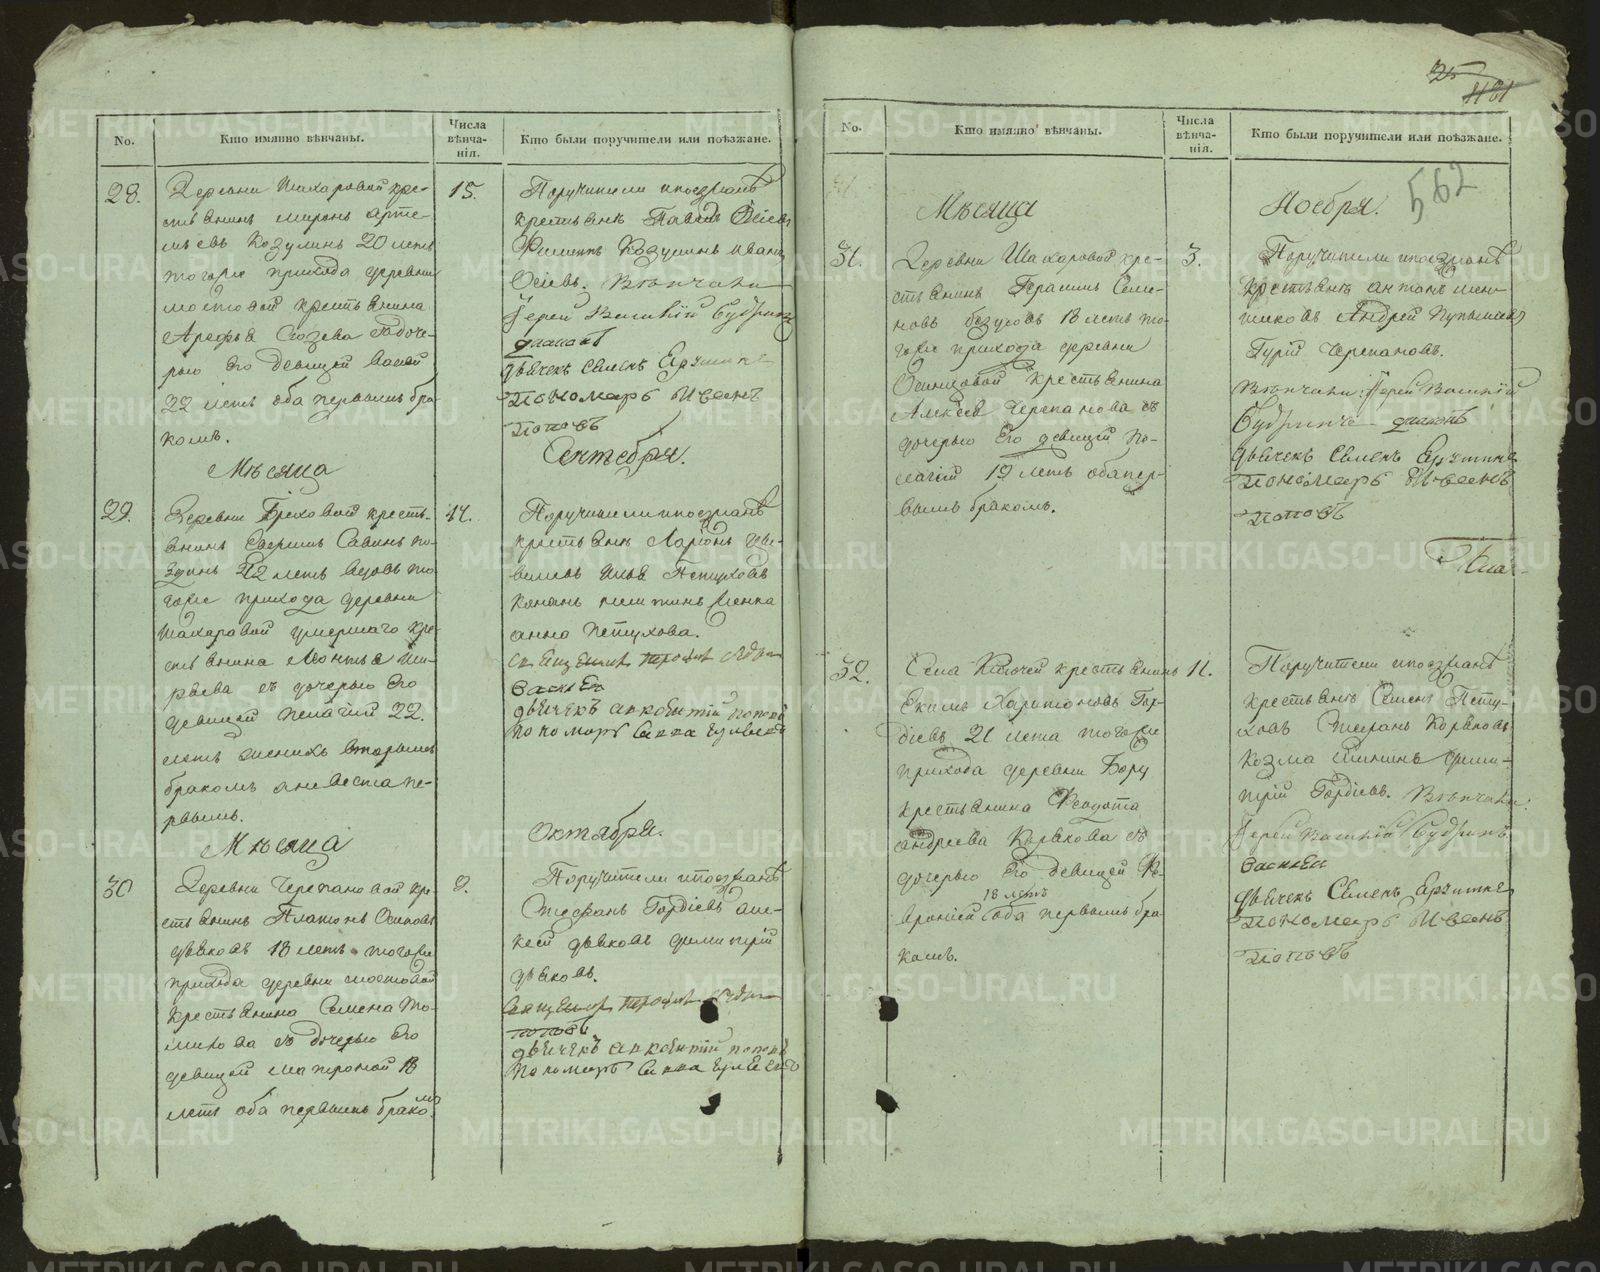 No.
Кто имянно вѣнчаны.
Числа
вѣнча-
нія.
Кто были поручители или поѣзжане.
28.
Деревни Шахаровой кре-
стьянинъ миронъ арте-
мьевъ Козулинъ 20 летъ
тогоже прихода деревни
мостовой крестьянина
Арефья
рью Его девицей
22 летъ оба первымъ бра
комъ.
15.
Поручители ипоезжанѣ
крестьянѣ Павелъ Осіевъ
Филипъ Козулинъ иванъ
Осіевъ. Вѣнчали
Іерей Василій Будринъ
діаконъ
дьячекъ Семенъ
пономарь Иванъ
поповъ
Мѣсяца
Сентября.
29.
Деревни крестъ-
янинъ Савинъ
летъ вдовъ то
гоже прихода деревни
Шахаровой умершаго кре-
стьянина
съ дочерью Его
девицей пелагіи 22.
летъ женихъ вторымъ
бракомъ аневеста пе-
рвымъ.
14.
Поручители ипоезжанѣ
крестьянѣ Ларіонъ
Илья Петуховъ
анна петухова.
дьячекъ аркентій поповъ
пономарь Савва
Мѣсяца
Октября.
30
Деревни Черепановой кре-
стьянинъ Платонъ Осиповъ
дьяковъ 18 летъ тогоже
прихода деревни мостовой
крестьянина Семена
съ дочерью Его
девицей матроной 18
летъ оба первымъ бракомъ.
9.
Поручители ипоезжанѣ
Стефанъ Гордіевъ але-
ксей дьяковъ димитрій
дьяковъ.
поповъ
дьячекъ аркентій поповъ
пономарь Савва
25
481
562
No.
Кто имянно вѣнчаны.
Числа
вѣнча-
нія.
Кто были поручители или поѣзжане.
Мѣсяца
Ноебря.
31.
Деревни Шахоровой кре-
стьянинъ Герасимъ Семе-
новъ 18 летъ то-
гоже прихода деревни
Осинцовой крестьянина
Алексея Черепанова съ
дочерью Его девицей Пе-
лагіей 19 летъ обапер-
вымъ бракомъ.
3.
Поручители ипоезжанѣ
крестьянѣ антонъ мен-
шиковъ Андрей
Гурій Черепановъ.
Вѣнчали: Іерей Василій
Будринъ діаконъ
дьячекъ Семенъ
пономарь Иванъ
поповъ
32.
Села крестьянинъ
Екимъ Харитоновъ Гор-
діевъ 21 лета тогоже
прихода деревни Бору
крестьянина Феодота
андреева Корякова съ
дочерью Его девицей Фе-
18 летъ
вроніей оба первымъ бра
комъ.
11.
Поручители ипоезжанѣ
крестьянѣ Семенъ Пету-
ховъ Стефанъ Коряковъ
Козма дими-
трій Гордіевъ. Вѣнчали:
Іерей Василій Будринъ
дьячекъ Семенъ
пономарь Иванъ
поповъ
METRIKI.GASO-URAL.RU